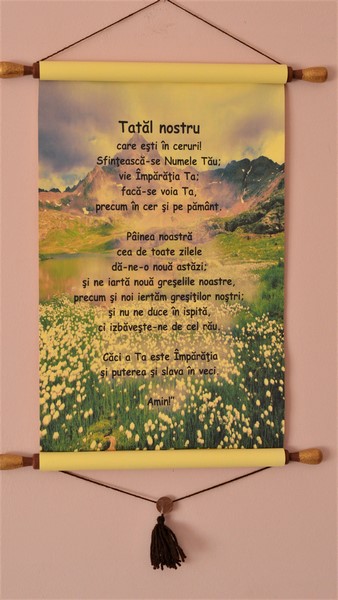 Tatăl nostru
care ești în ceruri!
Sfințească-se Numele Tău;
vie Împărăţia Ta;
facă-se voia Ta,
precum în cer și pe pământ.
Pâinea noastră
cea de toate zilele
dă-ne-o nouă astăzi;
și ne iartă nouă greșelile noastre,
precum și noi iertăm greșiților noștri;
și nu ne duce în ispită,
ci izbăvește-ne de cel rău.
Căci a Ta este Împărăţia
și puterea și slava în veci.
Amin!”